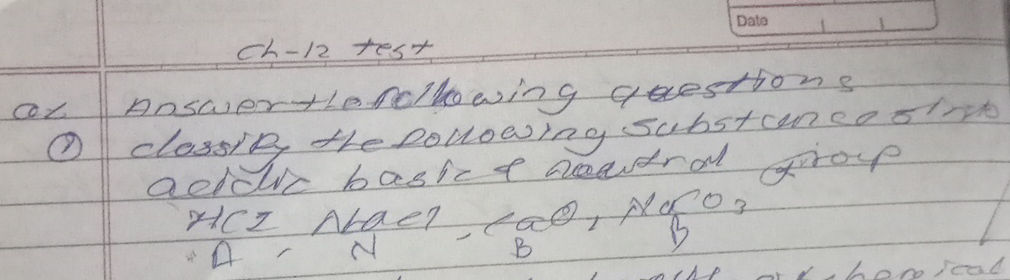 Date
Ch-12 test
Answer the following questions
① classify the following substances into
acidic basic & neutral group
HCl, NaCl, CaO, NaCO3
A N B B
chemical